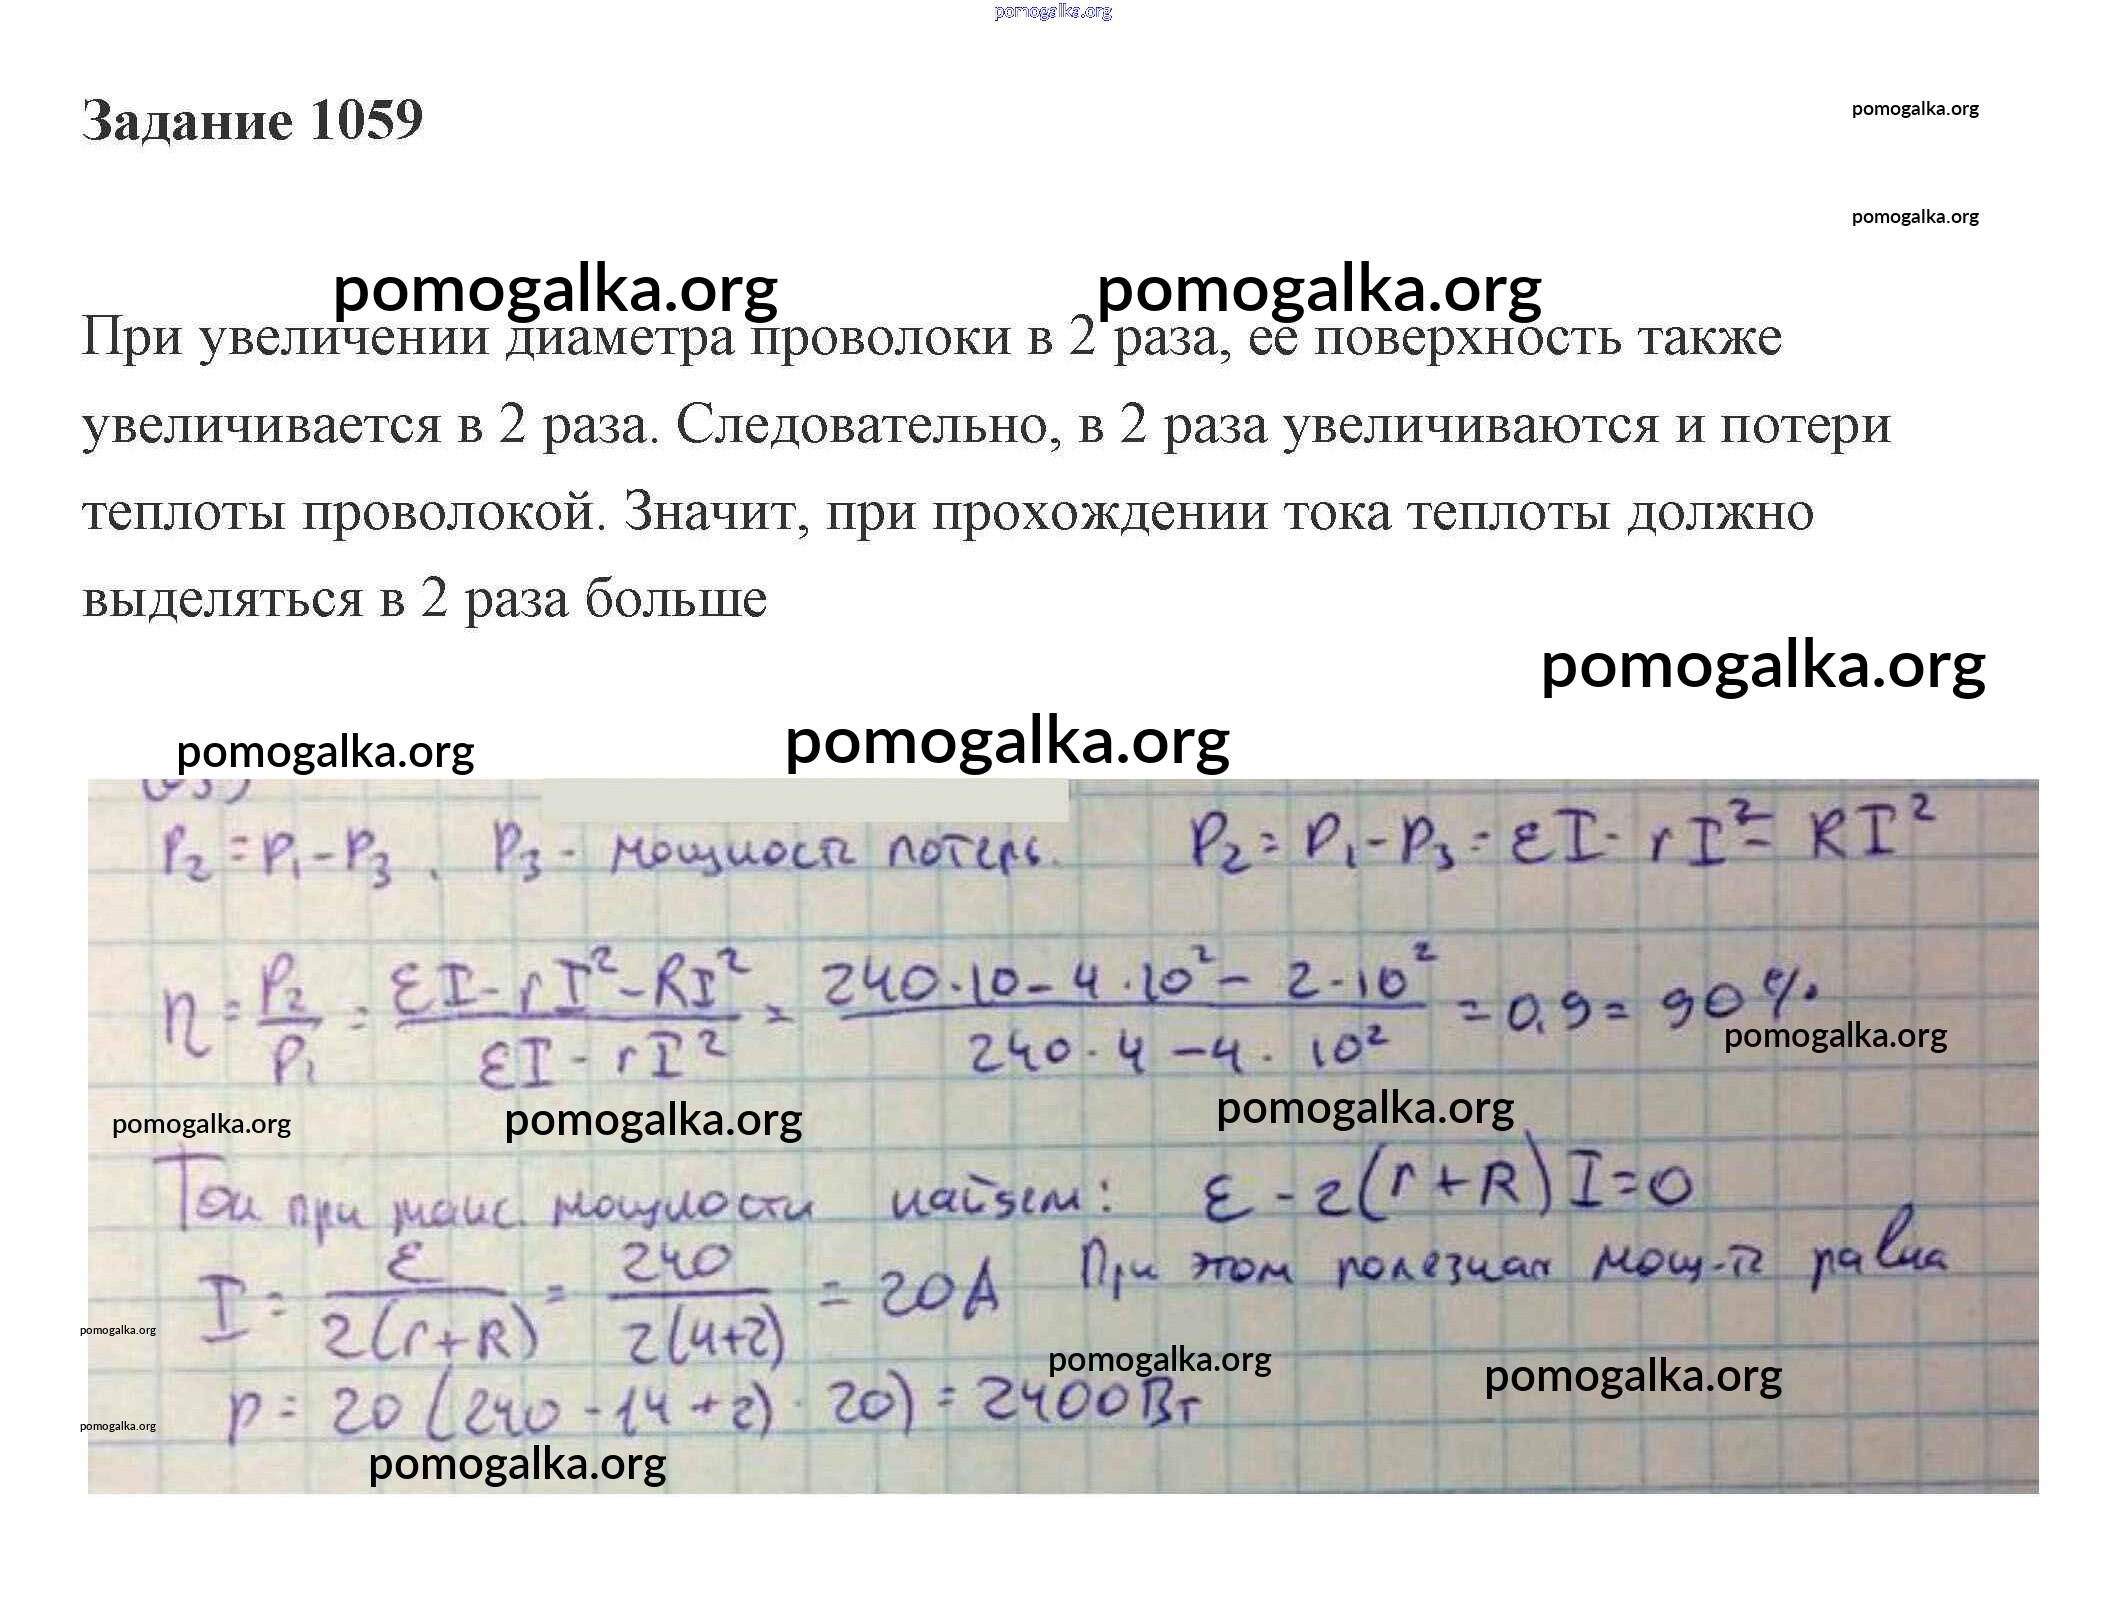 pomogalka.org
Задание 1059
pomogalka.org
pomogalka.org
pomogalka.org pomogalka.org
При увеличении диаметра проволоки в 2 раза, ее поверхность также
увеличивается в 2 раза. Следовательно, в 2 раза увеличиваются и потери
теплоты проволокой. Значит, при прохождении тока теплоты должно
выделяться в 2 раза больше
pomogalka.org
pomogalka.org pomogalka.org
P₂ = P₁ - P₃ , P₃ - мощность потерь. P₂ = P₁ - P₃ = εI - rI² = RI²
η = P₂/P₁ = (εI - rI² - RI²)/(εI - rI²) = (240·10 - 4·10² - 2·10²)/(240·4 - 4·10²) = 0,9 = 90%
pomogalka.org
pomogalka.org pomogalka.org pomogalka.org
Ток при макс. мощности найдем: ε - 2(r+R)I = 0
I = ε/(2(r+R)) = 240/(2(4+2)) = 20A При этом полезная мощ-ть равна
pomogalka.org pomogalka.org pomogalka.org
P = 20(240 - 14+2)·20) = 2400Вт
pomogalka.org
pomogalka.org